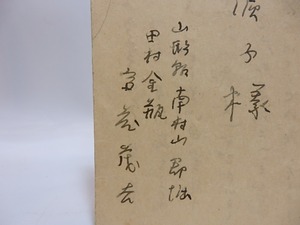 子様
山形縣 南村山郡堀
田村金瓶
齋藤茂吉